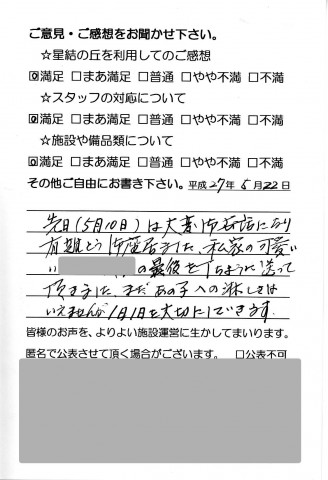 ご意見・ご感想をお聞かせ下さい。
☆星結の丘を利用してのご感想
☑満足 □まあ満足 □普通 □やや不満 □不満
☆スタッフの対応について
☑満足 □まあ満足 □普通 □やや不満 □不満
☆施設や備品類について
☑満足 □まあ満足 □普通 □やや不満 □不満
その他ご自由にお書き下さい。平成27年5月22日
先日(5月10日)は大変御世話になり
有難とう御座居ました、私家の可愛い
い の最後を 送って
頂きました、まだあの子への淋しさは
いえませんが1日1日を大切にしていきます。
皆様のお声を、よりよい施設運営に生かしてまいります。
匿名で公表させて頂く場合がございます。 □公表不可